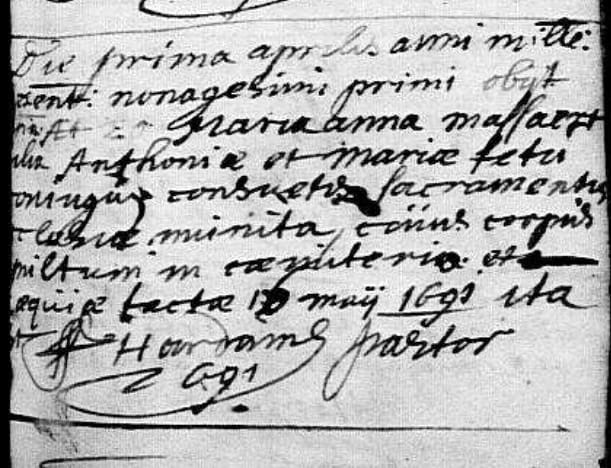 Die prima aprilis anni mille:
cent: nonagesimi primi obyt
Maria anna massaert
ilia Anthoniæ et mariæ fetu
oniugū consuetis sacramentis
clesiæ munita, cuius corpus
pultum in cæmiterio et
equiæ factæ maij 1691 ita
st Hordams pastor
1691